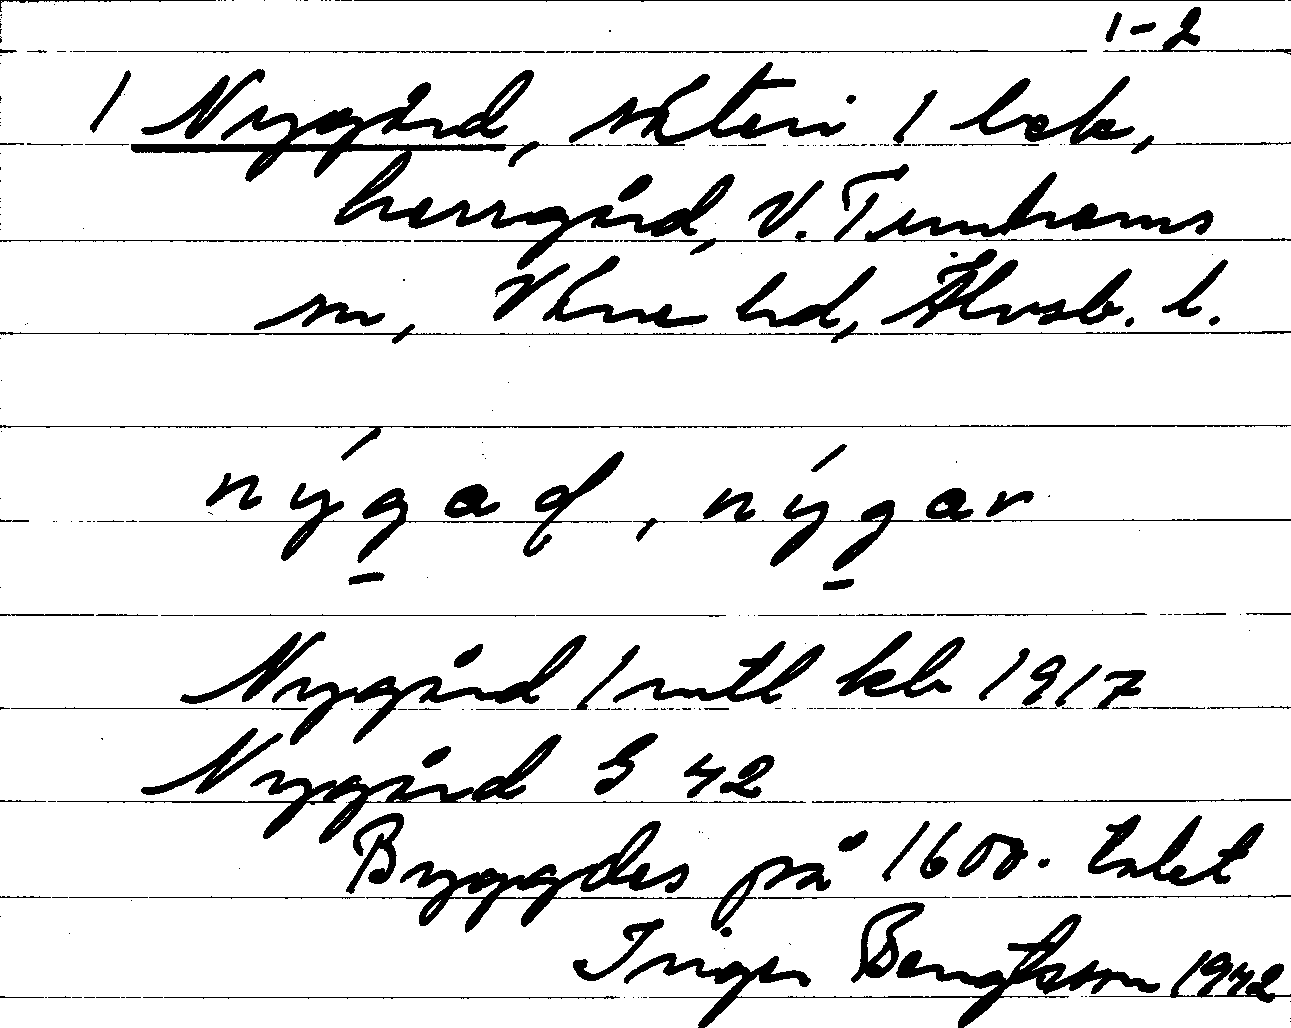 1-2
1 Nygård, säteri 1 bek,
herrgård, V. Tunhems
sn, Väne hd, Älvsb. l.
nýgaḍ, nýgar
Nygård 1 mtl kb 1917
Nygård G 42
Byggdes på 1600-talet
Inger Bengtsson 1942